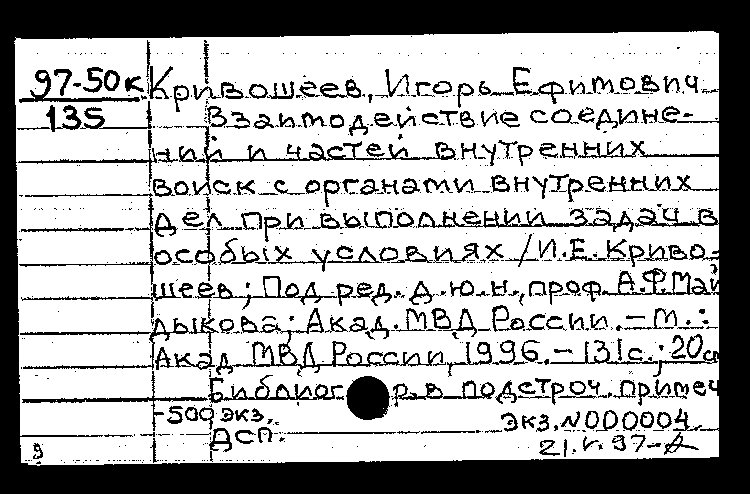 97-50к Кривошеев, Игорь Ефимович
135 Взаимодействие соедине-
ний и частей внутренних
войск с органами внутренних
дел при выполнении задач в
особых условиях / И.Е. Криво-
шеев; Под ред. д.ю.н., проф. А.Ф. Май
дыкова; Акад. МВД России. – М.:
Акад МВД России, 1996. – 131с.; 20см
Библиог р. в подстроч. примеч
-500 экз. экз. N000004
ДСП.
21.V.97-
9